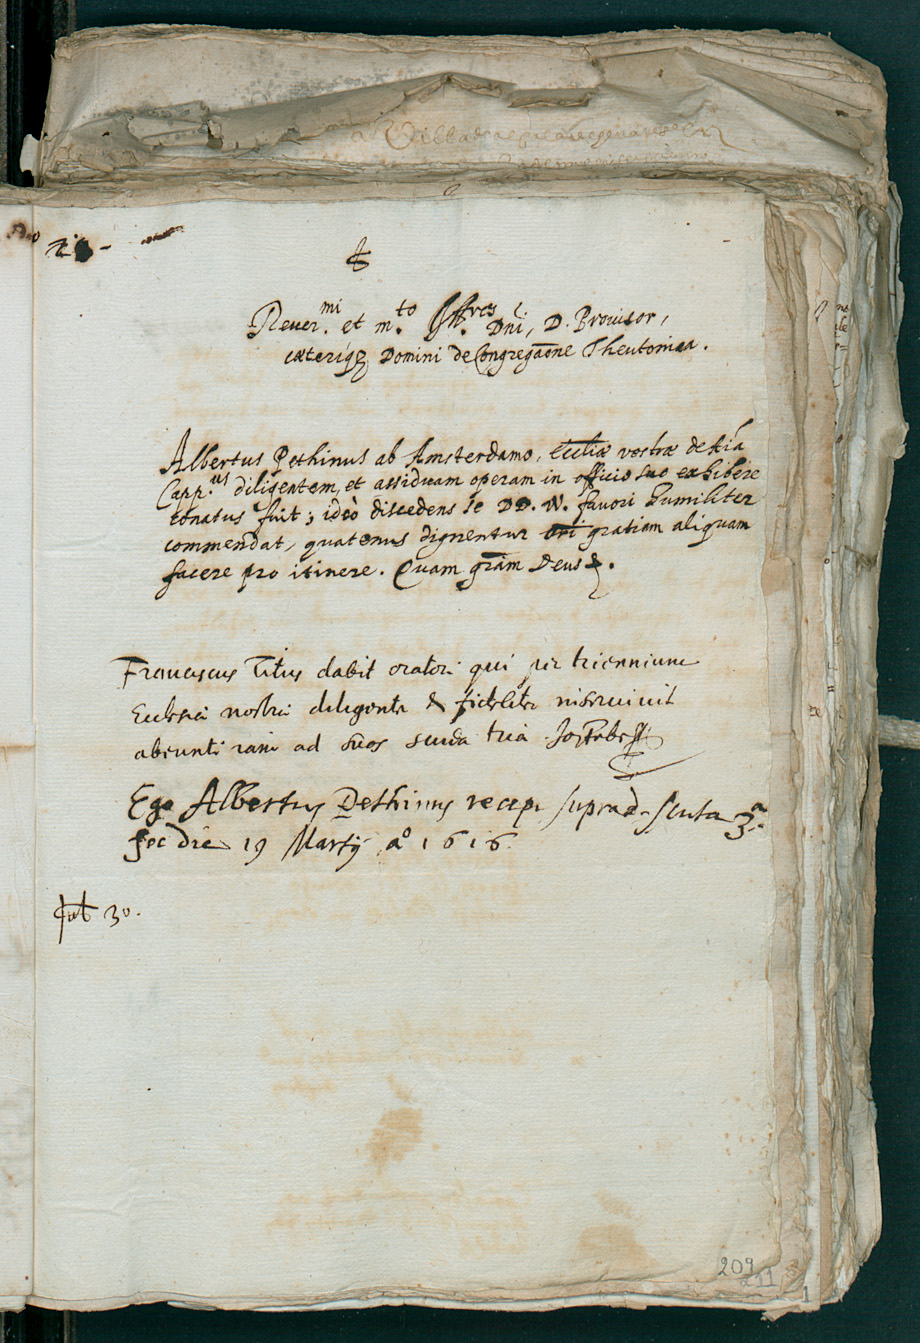 Reuer.mi et m.to Ill.res Dñi, D. Prouisor,
cæteriq3 Domini de Congregãone Theutonica.
Albertus Dethinus ab Amsterdamo, Eccłiæ vostræ de Aĩa
Capp.us diligentem, et assiduam operam in officio suo exhibere
conatus fuit; ideò discedens se DD. W. fauori humiliter
commendat, quatenus dignentur gratiam aliquam
facere pro itinere. Quam grãm Deus &.
Franciscus Titus dabit oratori qui per triennium
Ecclesiæ nostræ diligenter & fideliter inseruiuit
abeunti iam ad suos scuta tria
Ego Albertus Dethinus recepi suprad. scuta 3.a
hoc die 19 Martij aº 1616.
30.
209
211